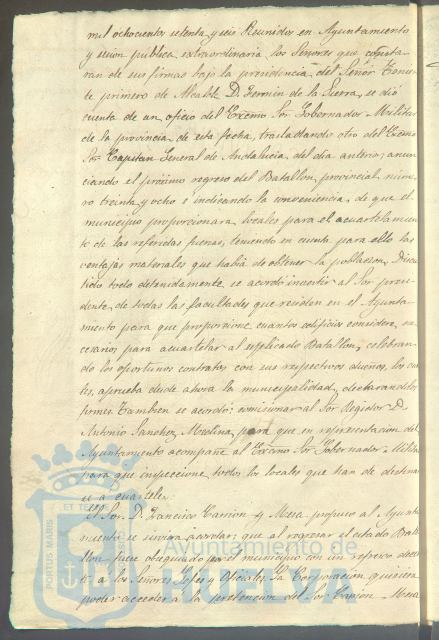 mil ochocientos setenta y seis Reunidos en Ayuntamiento
y sesion publica extraordinaria los Señores que constaran
de sus firmas bajo la presidencia del Señor Tenien
te primero de Alcalde D. Fermin de la Sierra, se dió
cuenta de un oficio del Excmo Sor Gobernador Militar
de la provincia de esta fecha, trasladando otro del Excmo
Sor Capitan General de Andalucia del dia anterior, anun
ciando el próximo regreso del Batallon provincial núme
ro treinta y ocho é indicando la conveniencia de que el
municipio proporcionara locales para el acuartelamien
to de las referidas fuerzas, teniendo en cuenta para ello las
ventajas materiales que habia de obtener la poblacion. Discu
tido todo detenidamente se acordó investir al Sor presi
dente de todas las facultades que residen en el Ayunta-
miento para que proporcione cuantos edificios considere ne
cesarios para acuartelar al esplicado Batallon, celebran
do los oportunos contratos con sus respectivos dueños, los cua
les, aprueba desde ahora la municipalidad, declarandolos
firmes. Tambien se acordó: comisionar al Sor Regidor D.
Antonio Sanchez Medina, para que en representacion del
Ayuntamiento acompañe al Excmo Sor Gobernador Militar
para que inspeccione todos los locales que han de destinar
se á cuarteles.
El Sor. D. Francisco Carrion y Mesa propuso al Ayunta
miento se sirviera acordar: que al regresar el citado Bata
llon fuese obsequiado por el municipio con un refresco
á los Señores Gefes y Oficiales. La Corporacion quisiera
poder acceder á la pretension del Sor Carrion Mesa
PORTUS MARIS
ET TERRE
Ayuntamiento de
HUELVA